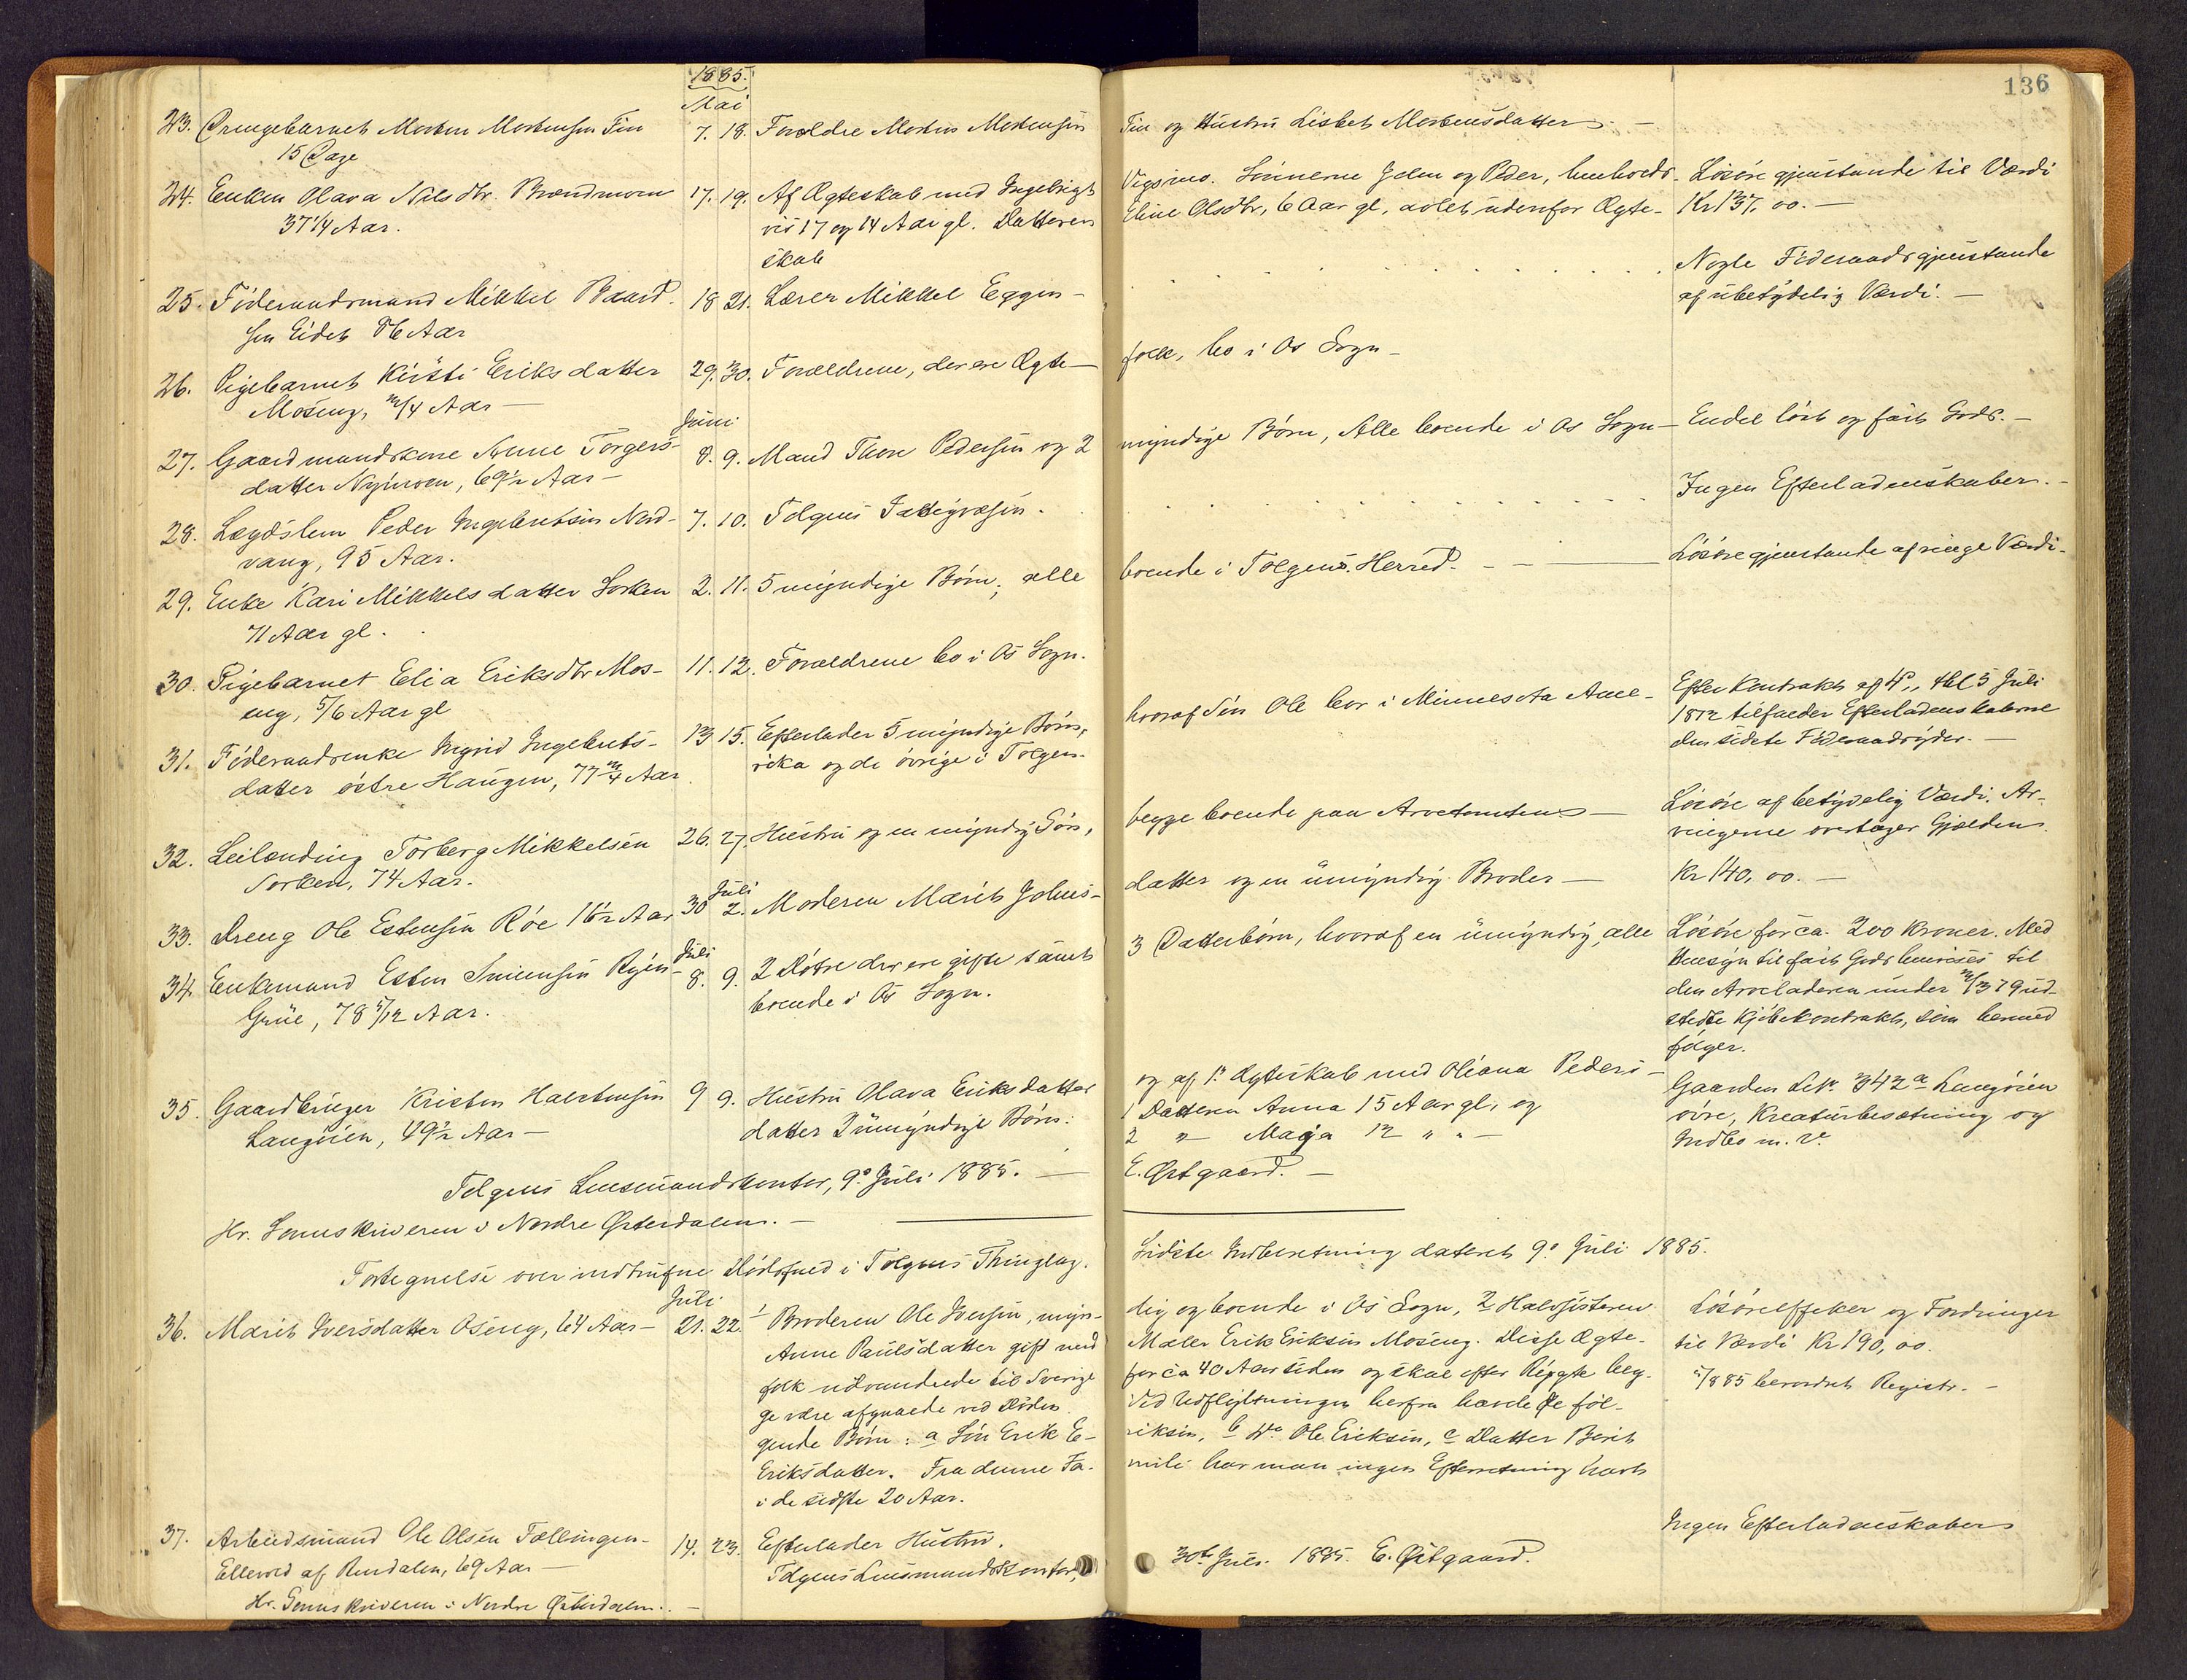 136
1885.
Mai
23. Drengebarnet Morten Mortensen Tin 7. 18. Forældre Morten Mortensen Tin og Hustru Lisbet Mortensdatter. —
15 Dage
24. Enken Olava Nilsdtr. Brændmoen 17. 19. Af Ægteskab med Ingebrigt Vigsmo. Sønnerne John og Peder, henholds- Løsøregjenstande til Værdi
37 1/4 Aar. vis 17 og 14 Aar gl. Datteren Eline Olsdtr, 6 Aar gl, avlet udenfor Ægte- Kr 137,00. —
skab
Nogle Føderaadsgjenstande
25. Føderaadsmand Mikkel Baard- 18 21. Lærer Mikkel Eggen — af ubetydelig Værdi. —
sen Eidet 86 Aar
26. Pigebarnet Kirsti Eriksdatter 29. 30. Forældrene, der ere Ægte- folk, bo i Os Sogn —
Moseng, 3/4 Aar —
Juni
27. Gaardmandskone Anne Torgers- 8. 9. Mand Thore Pedersen og 2 myndige Børn, Alle boende i Os Sogn — Endel løst og fast Gods. —
datter Nyinoen, 69 1/2 Aar —
28. Lægdslem Peder Ingebretsen Nord- 7. 10. Tolgens Fattigvæsen. Ingen Efterladenskaber. —
vang, 95 Aar.
29. Enke Kari Mikkelsdatter Sorken 2. 11. 5 myndige Børn, alle boende i Tolgens Herred. — Løsøregjenstande af ringe Værdi.
71 Aar gl.
30. Pigebarnet Elia Eriksdtr Mos- 11. 12. Forældrene bo i Os Sogn.
eng, 5/6 Aar gl
31. Føderaadsenke Ingrid Ingebrets- 13 15. Efterlader 5 myndige Børn, hvoraf Søn Ole bor i Minnesota Ame- Efter Kontrakt af thl 5 Juli
datter østre Haugen, 77 3/4 Aar rika og de øvrige i Tolgen. 1872 tilfalder Efterladenskaberne
den sidste Føderaadsyder. —
32. Leilænding Torberg Mikkelsen 26. 27. Hustru og en myndig Søn, begge boende paa Arvetomten — Løsøre af betydelig Værdi. Ar-
Sorken, 74 Aar. vingerne overtager Gjælden.
Juli
33. Dreng Ole Estensen Røe 16 1/2 Aar 30 2. Moderen Marit Johns- datter og en umyndig Broder — Kr 140,00. —
Juli
34. Enkemand Esten Simensen Ryen- 8. 9. 2 Døtre der ere gifte samt 3 Datterbørn, hvoraf en umyndig, alle Løsøre for ca. 200 Kroner. Med
Grue, 78 5/12 Aar. boende i Os Sogn. Hensyn til fast Gods henvises til
den Arveladeren under 79 ud-
stedte Kjøbekontrakt, som hermed
følger.
35. Gaardbruger Kristen Halstensen 9 9. Hustru Olava Eriksdatter og af 1. Ægteskab med Oliana Peders- Gaarden L.N. 342 a Langøien
Langøien, 49 1/2 Aar — datter 2 umyndige Børn: 1 Datteren Anna 15 Aar gl, og øvre, Kreaturbesætning og
2 " Maja 12 " " — Indbo m. v.
Tolgens Lensmandskontor, 9. Juli 1885. — E. Østgaard. —
Hr. Sorenskriveren i Nordre Østerdalen. —
Fortegnelse over indtrufne Dødsfald i Tolgens Thinglag. Sidste Indberetning dateret 9. Juli 1885.
Juli
36. Marit Iversdatter Oseng, 64 Aar — 21. 22. 1 Broderen Ole Iversen, myn- dig og boende i Os Sogn, 2 Halvsøsteren Løsøreeffekter og Fordringer
Anne Paulsdatter gift med Maler Erik Eriksen Moseng. Disse Ægte- til Værdi Kr 190,00.
folk udvandrede til Sverige for ca 40 Aar siden og skal efter Rygte beg- 85 beordret Registr. —
ge være afgaaede ved Døden. Ved Udflytningen herfra havde de føl-
gende Børn: a Søn Erik E- riksen, b Do Ole Eriksen, c Datter Berit
Eriksdatter. Fra denne Fa- milie har man ingen Efterretning havt
i de sidste 20 Aar.
37. Arbeidsmand Ole Olsen Tællingen- 14. 23. Efterlader Hustru. Ingen Efterladenskaber
Ellevold af Rendalen, 69 Aar — Tolgens Lensmandskontor, 30te Juli 1885. E. Østgaard.
Hr. Sorenskriveren i Nordre Østerdalen. —